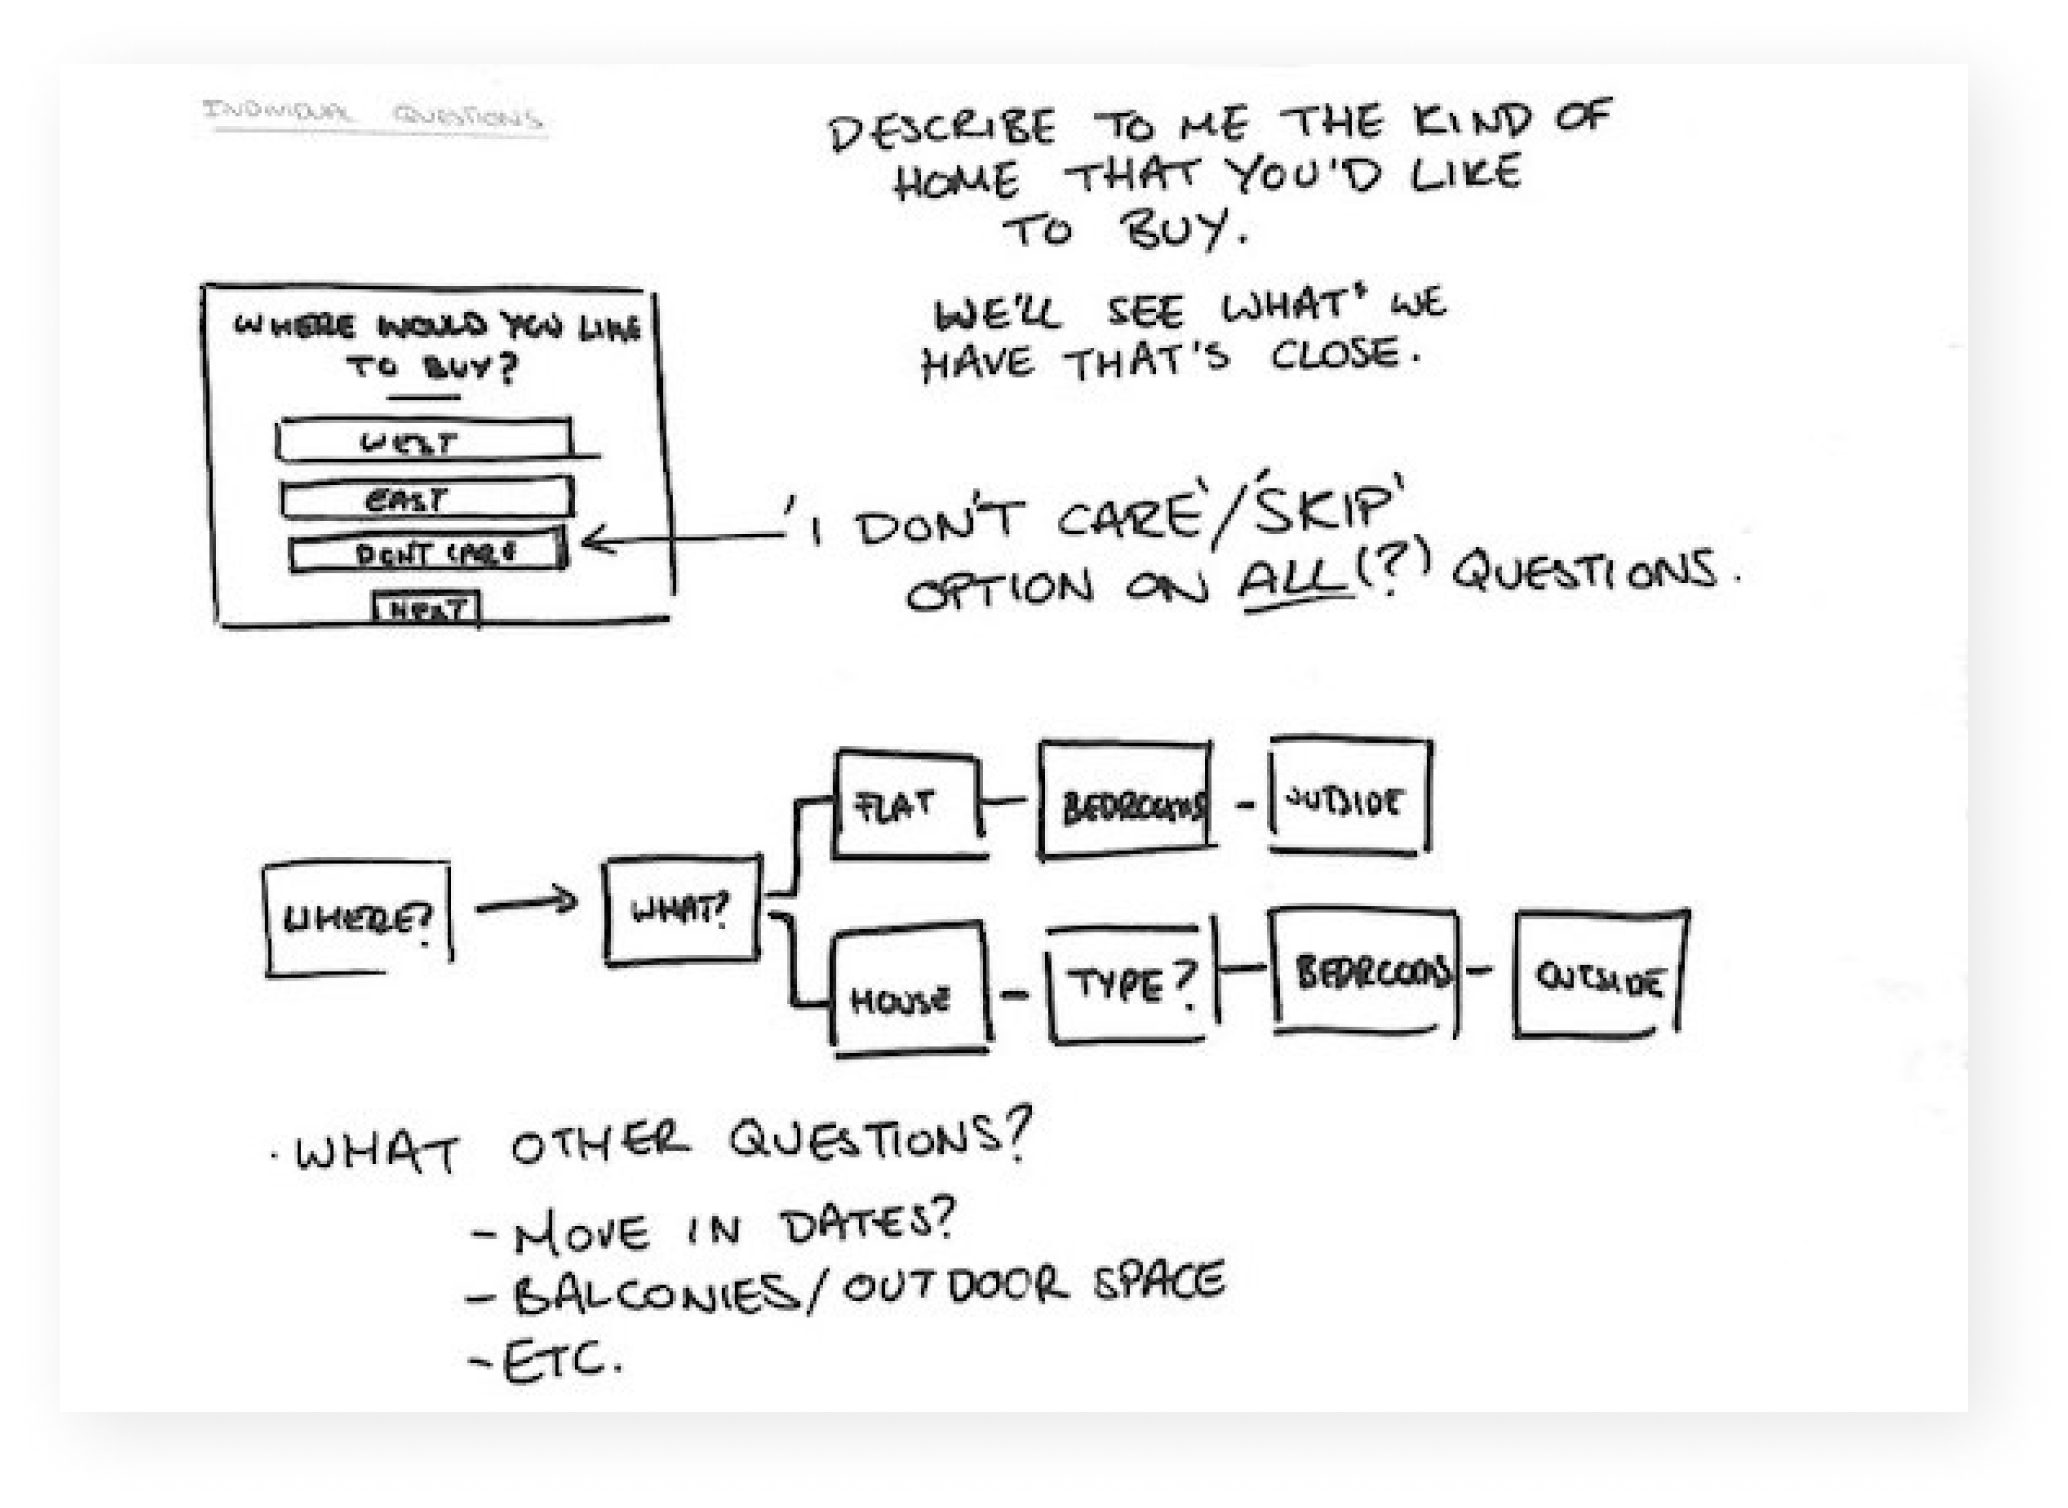 INDIVIDUAL QUESTIONS
DESCRIBE TO ME THE KIND OF
HOME THAT YOU'D LIKE
TO BUY.
WE'LL SEE WHAT' WE
HAVE THAT'S CLOSE.
WHERE WOULD YOU LIKE
TO BUY?
WEST
EAST
DONT CARE
NEXT
'I DON'T CARE'/'SKIP'
OPTION ON ALL(?) QUESTIONS.
WHERE?
WHAT?
FLAT
BEDROOMS
OUTSIDE
HOUSE
TYPE?
BEDROOMS
OUTSIDE
· WHAT OTHER QUESTIONS?
- MOVE IN DATES?
- BALCONIES/OUTDOOR SPACE
- ETC.